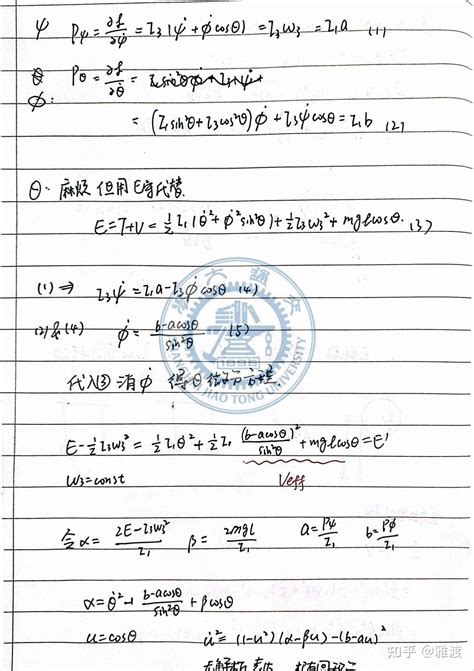 ψ  Pψ = ∂L/∂ψ̇ = I₃(ψ̇ + φ̇cosθ) = I₃ω₃ = I₁a (1)
φ: Pθ = ∂L/∂θ̇ =
= (I₁sin²θ + I₃cos²θ)φ̇ + I₃ψ̇cosθ = I₁b (2)
θ· 麻烦 但用E守代替
E = T+V = ½I₁(θ̇² + φ̇²sin²θ) + ½I₃ω₃² + mglcosθ. (3)
(1) ⇒ I₃ψ̇ = I₁a - I₃φ̇cosθ (4)
(2)&(4) φ̇ = (b-acosθ)/sin²θ (5)
SHANGHAI JIAO TONG UNIVERSITY
1896
代入③ 消φ̇ 得θ微分方程
E - ½I₃ω₃² = ½I₁θ̇² + ½I₁ (b-acosθ)²/sin²θ + mglcosθ = E'
ω₃ = const Veff
令 α = (2E - I₃ω₃²)/I₁ β = 2mgl/I₁ a = Pψ/I₁ b = Pφ/I₁
α = θ̇² + (b-acosθ)/sin²θ + βcosθ
u = cosθ u̇² = (1-u²)(α-βu) - (b-au)²
知乎 @雅渡